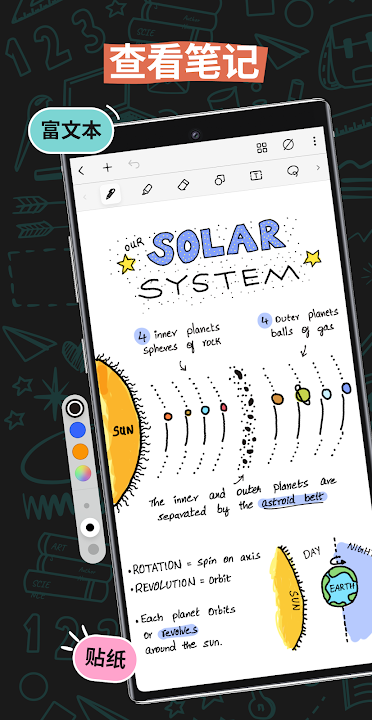 123
查看笔记
富文本
OUR
SOLAR
SYSTEM
4 inner planets
spheres of rock
4 Outer planets
balls of gas
SUN
The inner and outer planets are
separated by the astroid belt
• ROTATION = spin on axis
• REVOLUTION = orbit
• Each planet orbits
or revolves
around the sun.
SUN
DAY
NIGH
EARTH
ART
贴纸